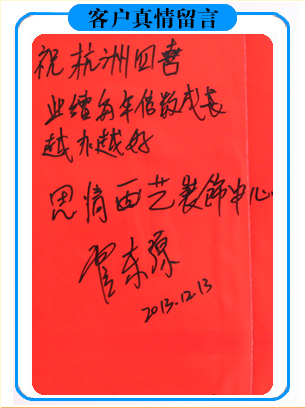 客户真情留言
祝杭州四喜
业绩每年倍数成长
越办越好
思情西艺装飾中心
霍东源
2013.12.13